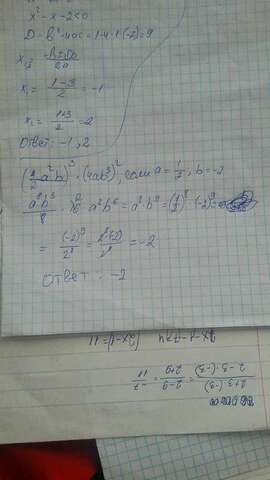 x² - x - 2 < 0
D = b² - 4ac = 1 - 4·1·(-2) = 9
x₁,₂ = (-b ± √D)/2a
x₁ = (1-3)/2 = -1
x₂ = (1+3)/2 = 2
Ответ: -1, 2
(1/2 a²b)³ · (4ab³)², если a = 1/2, b = -2
a⁶b³/8 · 16 a²b⁶ = a⁸ · b⁹ = (1/2)⁸ · (-2)⁹ =
= (-2)⁹/2⁸ = 2⁸·(-2)/2⁸ = -2
Ответ: -2
(2x-1) = 11
2+3·(-3)/2-3·(-3) = 2-9/2+9 = -7/11